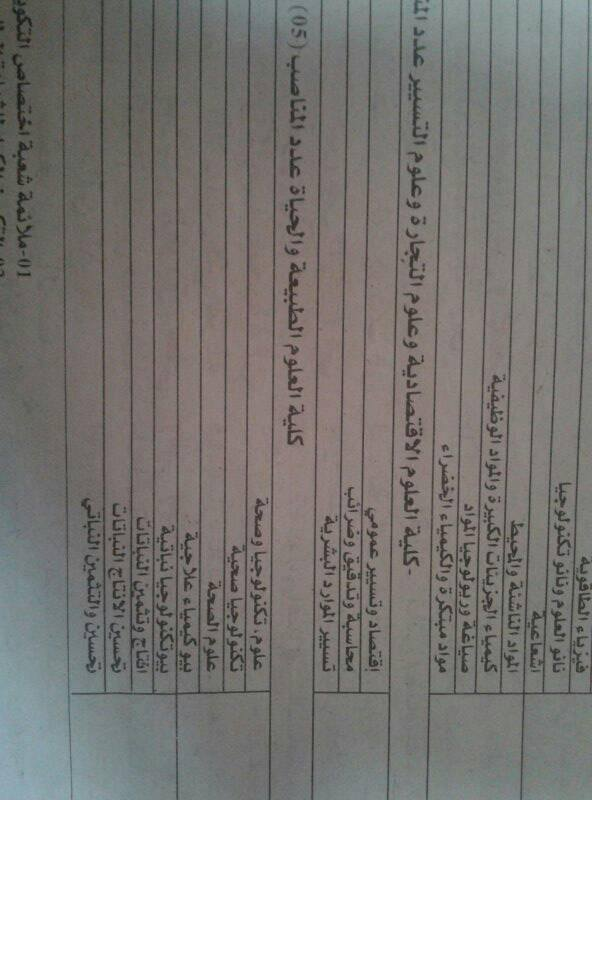 فيزياء الطاقوية
نانو العلوم ونانو تكنولوجيا
اشعاعية
المواد الناشئة والمحيط
كيمياء الجزيئات الكبيرة والمواد الوظيفية
صياغة وريولوجيا المواد
مواد مبتكرة والكيمياء الخضراء
-كلية العلوم الاقتصادية وعلوم التجارة وعلوم التسيير عدد
إقتصاد وتسيير عمومي
محاسبة وتدقيق وضرائب
تسيير الموارد البشرية
كلية العلوم الطبيعة والحياة عدد المناصب (05)
علوم، تكنولوجيا وصحة
تكنولوجيا صحية
علوم الصحة
بيو كيمياء علاجية
بيوتكنولوجيا نباتية
انتاج وتثمين النباتات
تحسين الانتاج النباتات
تحسين والتثمين النباتي
01-ملائمة شعبة اختصاص